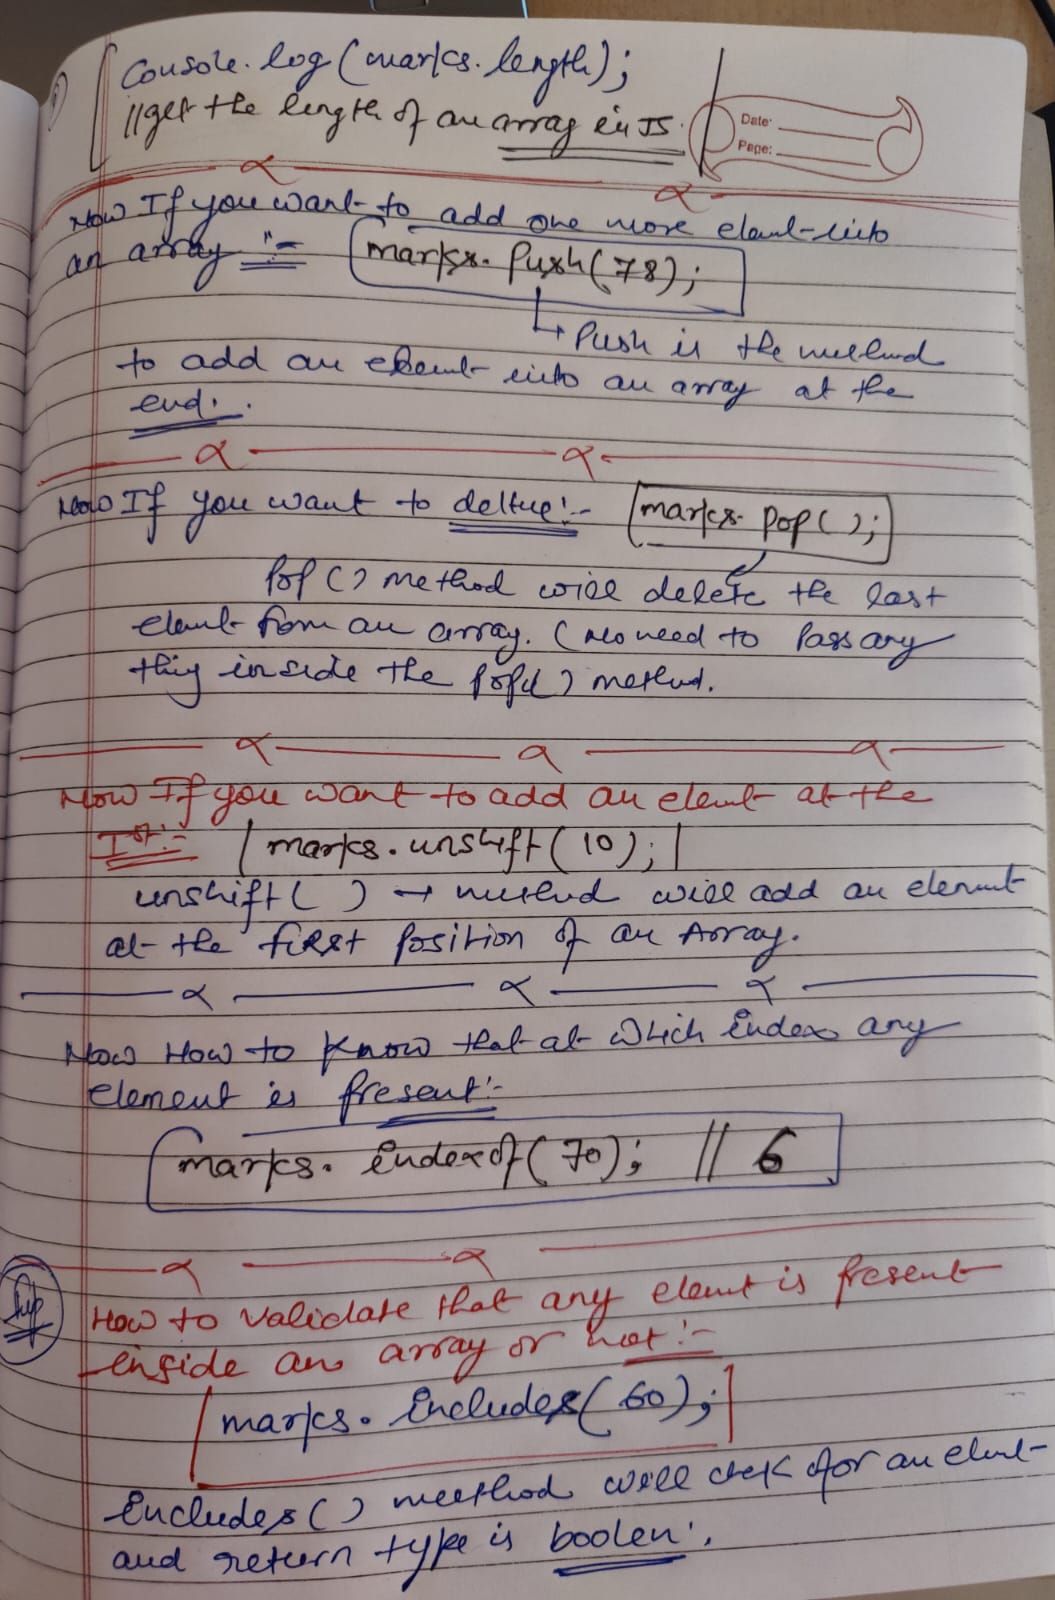 Console.log(marks.length);
//get the length of an array in JS.
Date:
Page:
Now If you want to add one more element into
an array :- marks.Push(78);
Push is the method
to add an element into an array at the
end.
Now If you want to deltue:- marks.pop();
Pop() method will delete the last
element from an array. (No need to Pass any
thing inside the Pop() method.
Now If you want to add an element at the
Ist:- marks.unshift(10);
unshift() → method will add an element
at the first Position of an Array.
Now How to Know that at which index any
element is Present:-
marks.indexof(70); // 6
Imp
How to Validate that any element is Present
inside an array or not:-
marks.includes(60);
includes() meethod will chek for an element
and return type is boolen.